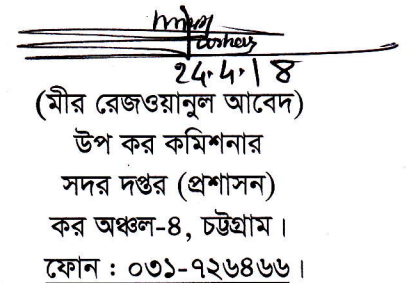 24.4.18
(মীর রেজওয়ানুল আবেদ)
উপ কর কমিশনার
সদর দপ্তর (প্রশাসন)
কর অঞ্চল-৪, চট্টগ্রাম।
ফোন : ০৩১-৭২৬৪৬৬।